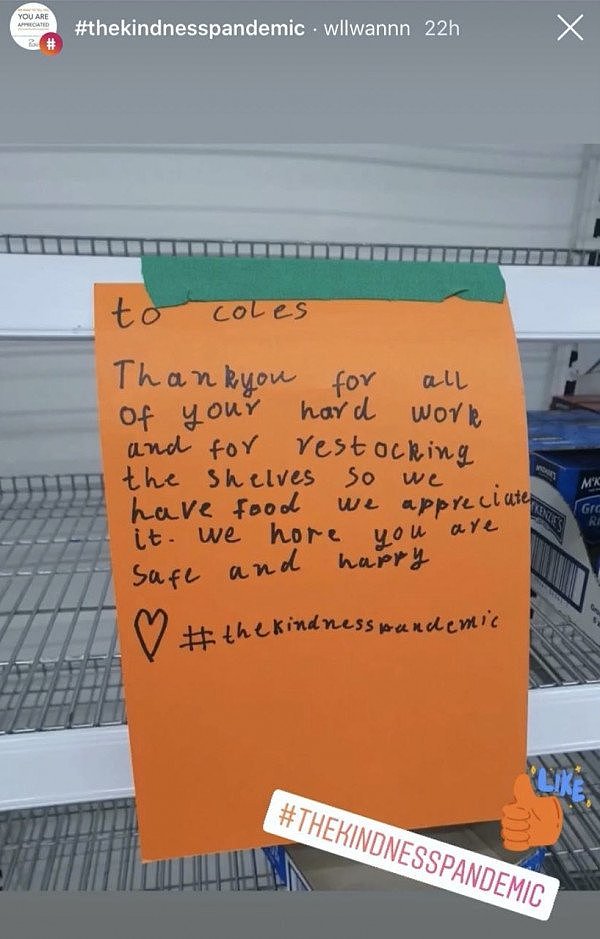 YOU ARE
APPRECIATED
#thekindnesspandemic · wllwannn 22h
to coles
Thankyou for all
of your hard work
and for restocking
the shelves so we
have food we appreciate
it. we hope you are
safe and happy
♡ #thekindnesspandemic
LIKE
#THEKINDNESSPANDEMIC